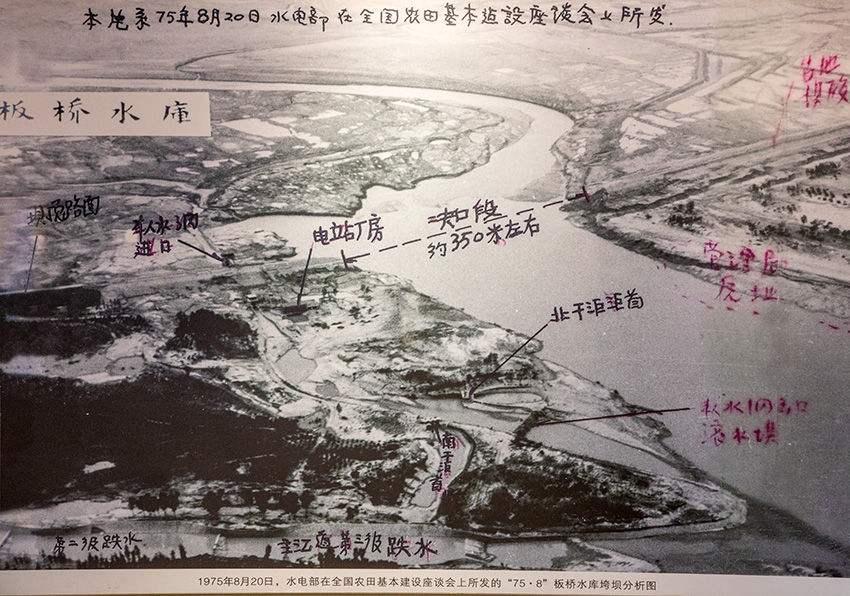 本图系75年8月20日水电部在全国农田基本建设座谈会上所发.
板桥水库
坝顶路面
进口
电站厂房
决口段
约350米左右
北干渠渠首
管理局
南干渠首
溢水坝
第二级跌水
第三级跌水
1975年8月20日，水电部在全国农田基本建设座谈会上所发的“75·8”板桥水库垮坝分析图